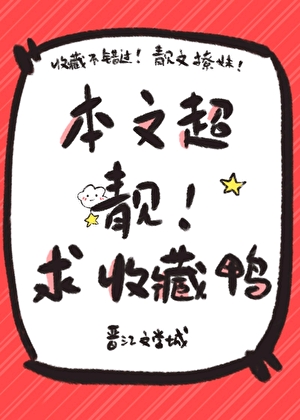 收藏不错过！靓文撩妹！
本文超
靓！
求收藏鸭
晋江文学城